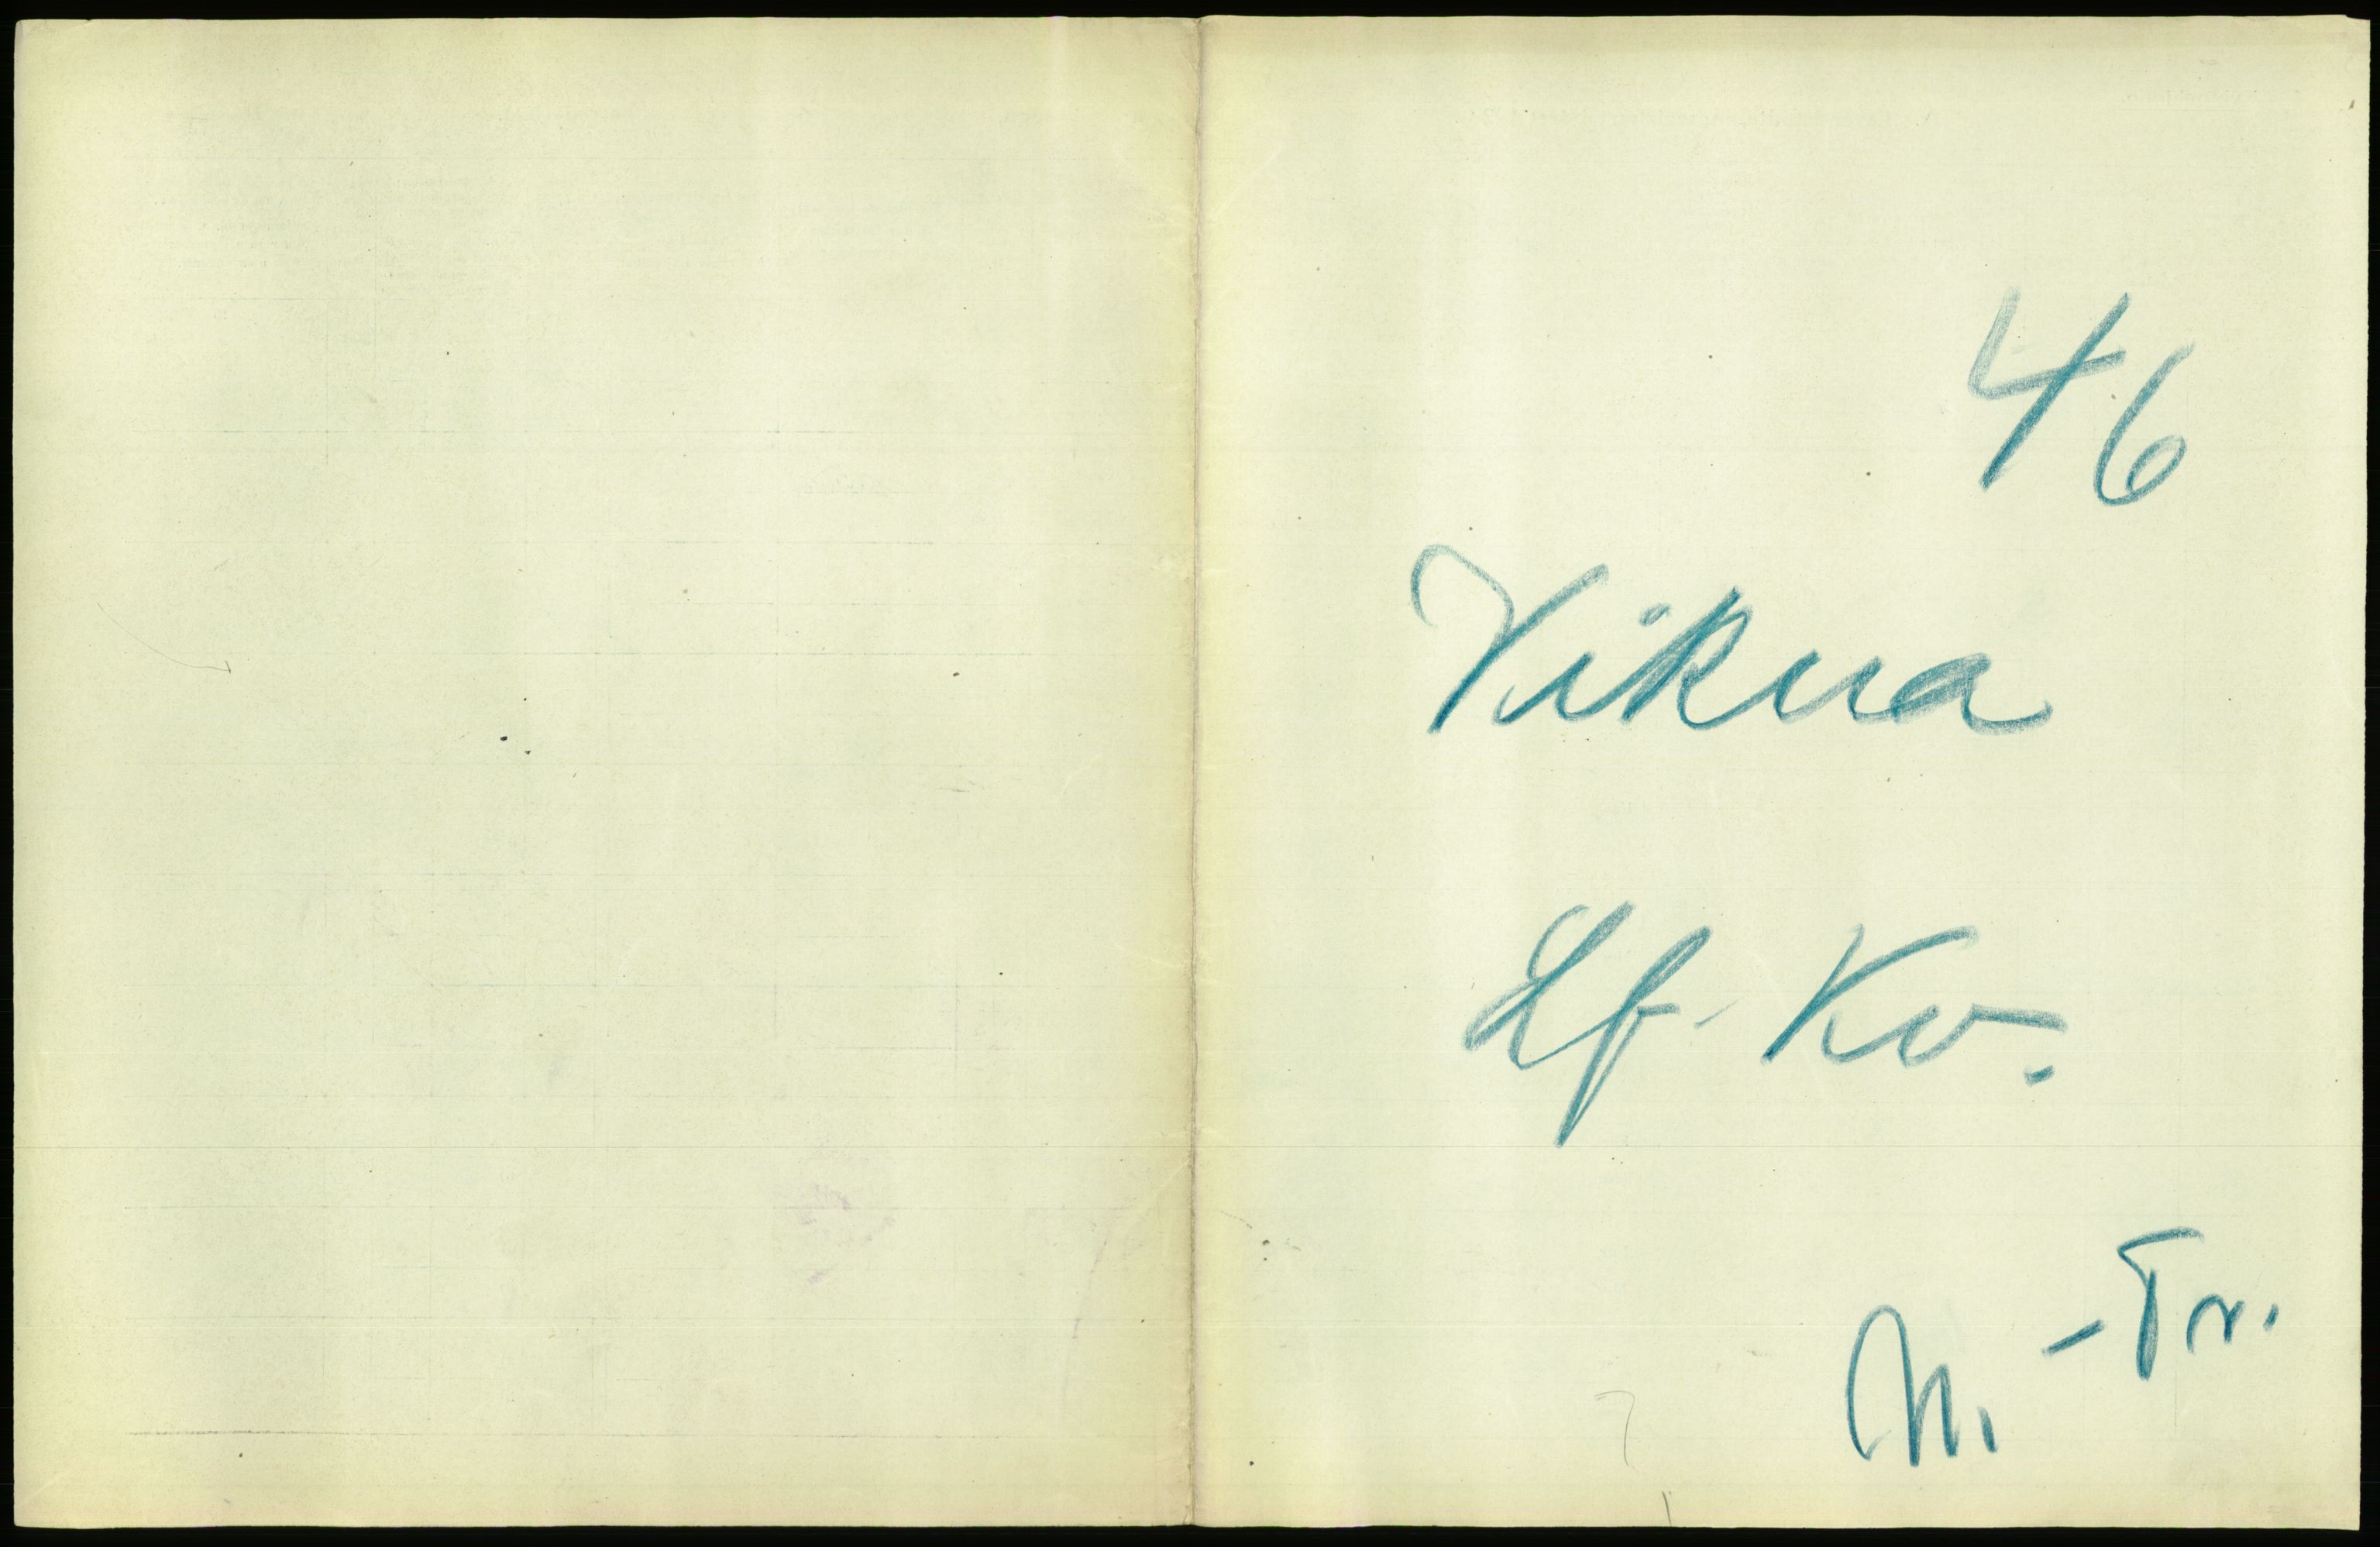 46
Vikna
Lf. Kv.
N. - Tr.